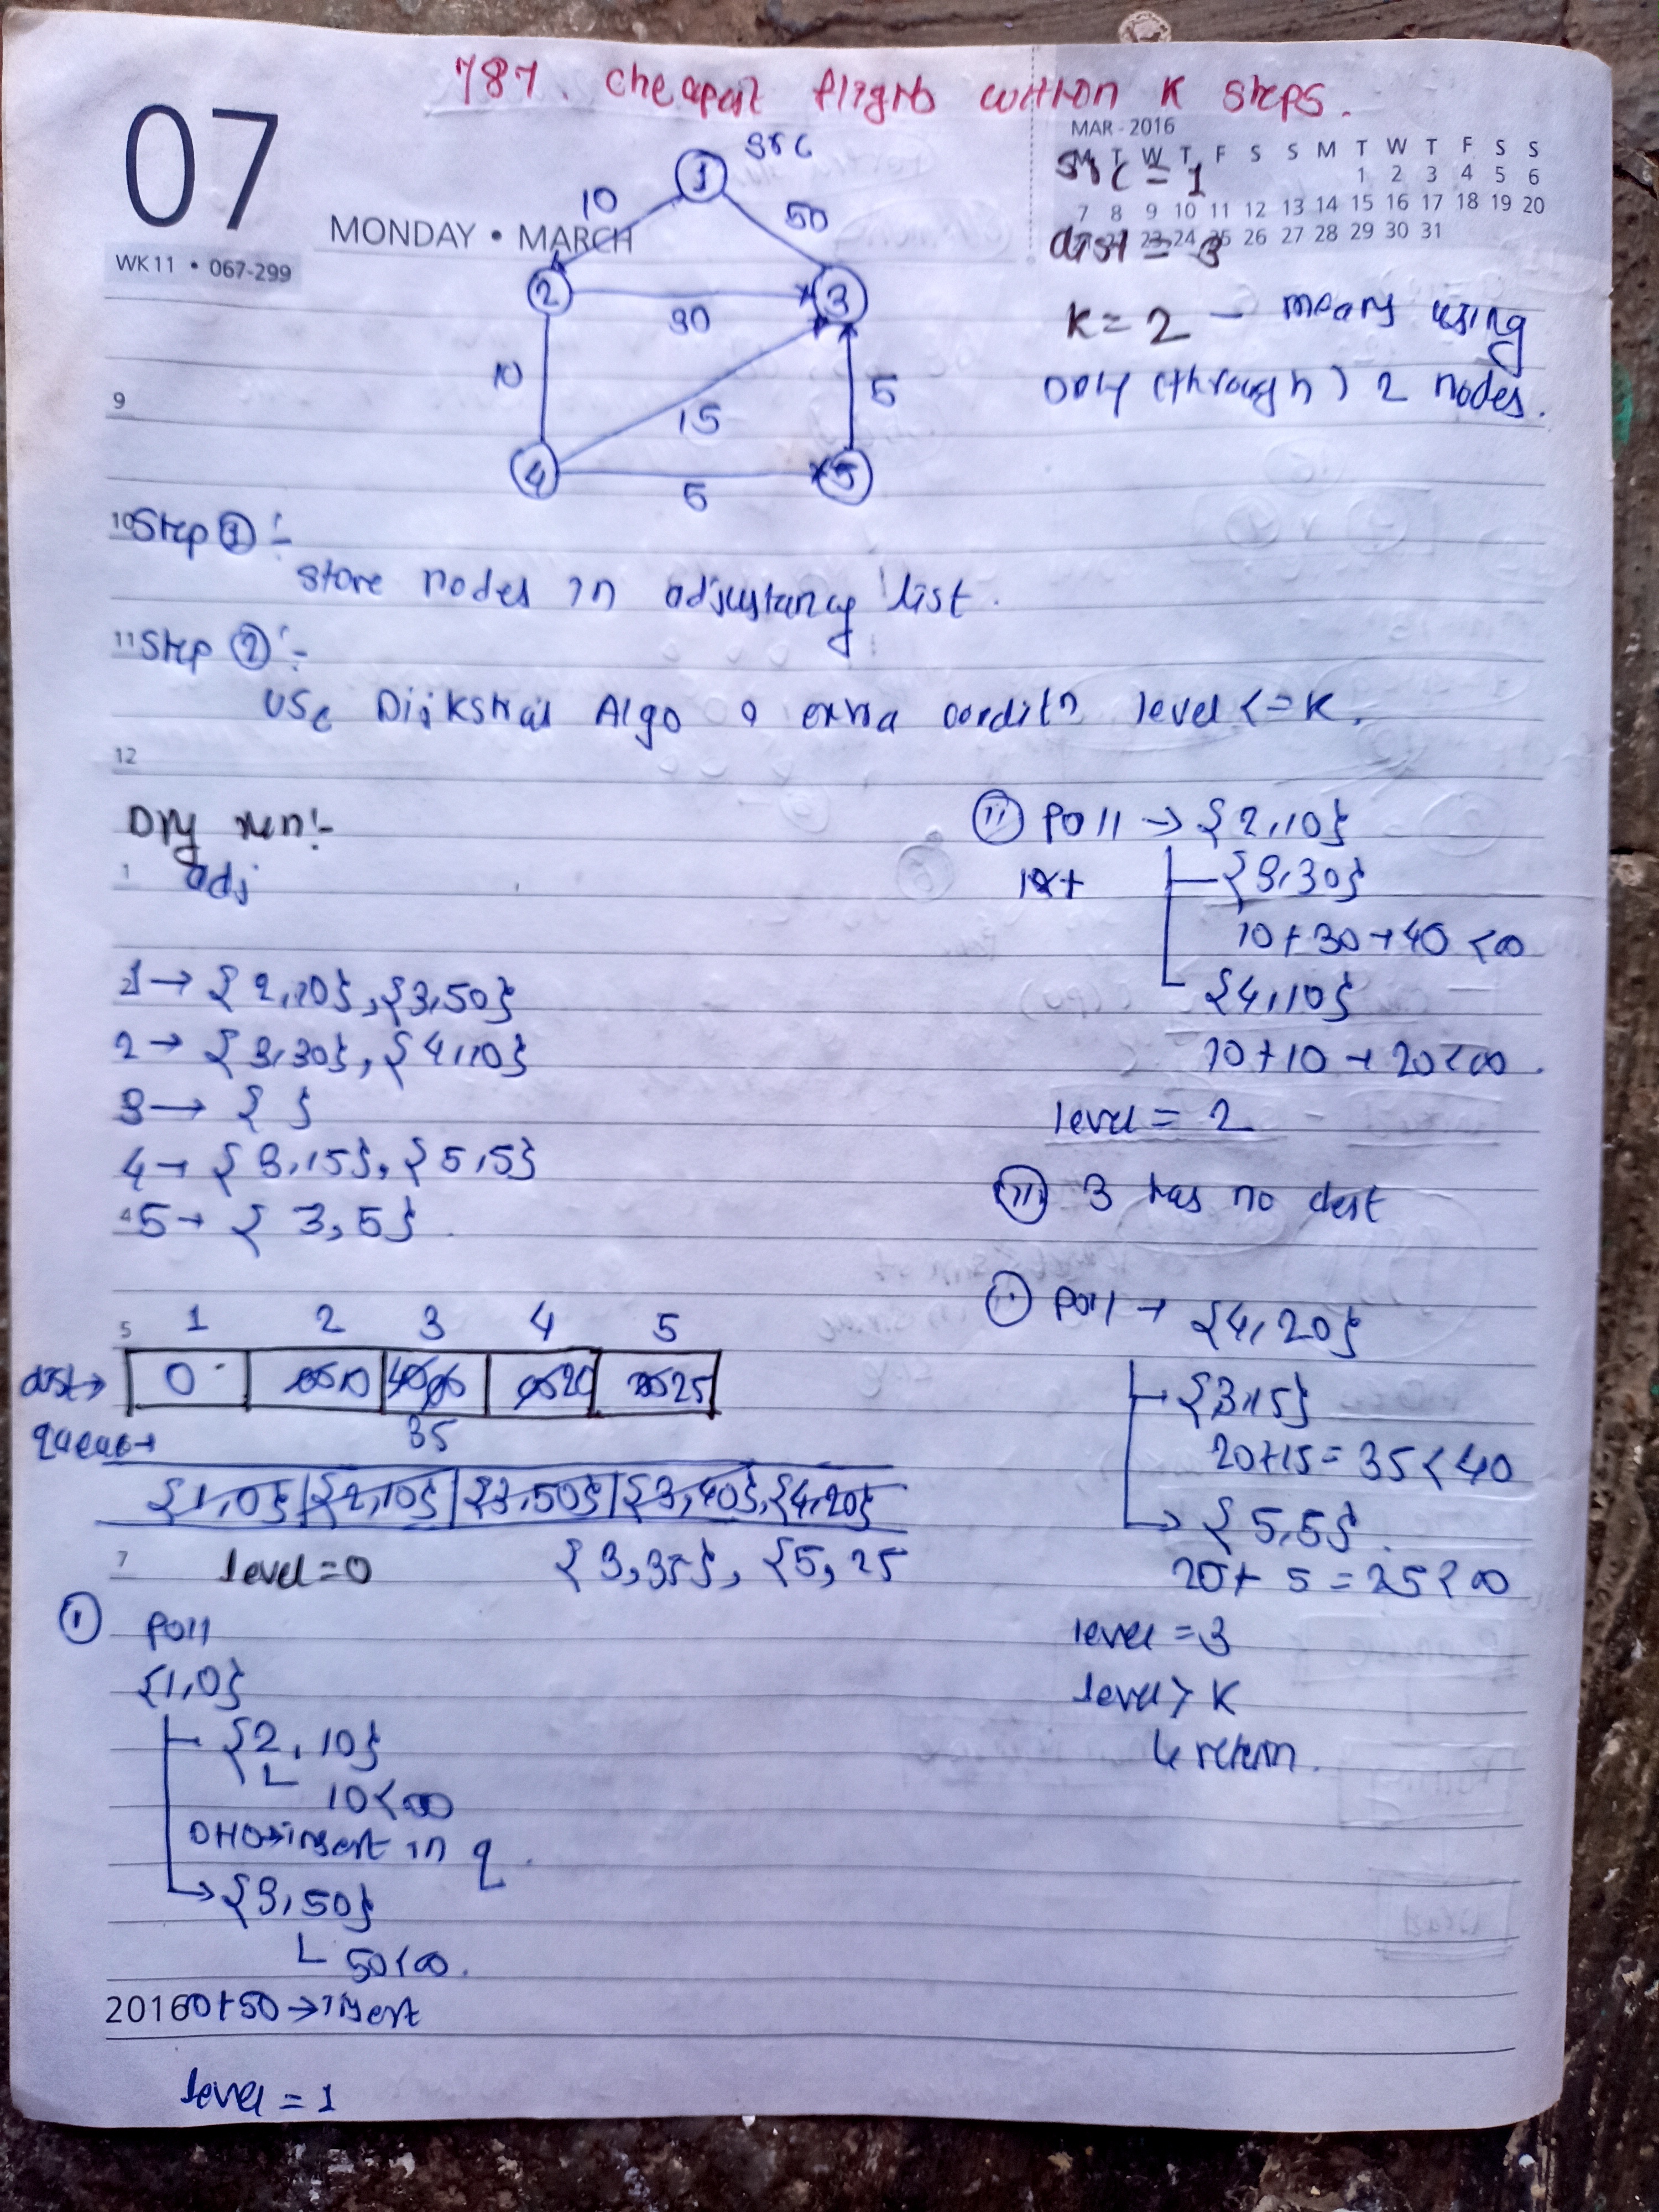 787. Cheapest flights within K steps.
07
MONDAY • MARCH
WK11 • 067-299
MAR - 2016
M T W T F S S M T W T F S S
1 2 3 4 5 6
7 8 9 10 11 12 13 14 15 16 17 18 19 20
23 24 25 26 27 28 29 30 31
src
1
10
50
2
30
3
10
15
5
4
5
5
src = 1
dist = 3
K = 2 - means using
only (through) 2 nodes.
9
10 Step ① :-
store nodes in adjustancy list.
11 Step ② :-
Use Dijkstra's Algo extra conditn level <= K.
12
Dry run :-
1 adj
1 → {2,10}, {3,50}
2 → {3,30}, {4,10}
3 → { }
4 → {3,15}, {5,5}
4 5 → { 3, 5}
5 1 2 3 4 5
dist → 0 ∞10 40 ∞20 ∞25
queue → 35
{1,0} | {2,10} | {3,50} | {3,40}, {4,20}
7 level = 0 {3,35}, {5, 25
(i) Poll
{1,0}
{2, 10}
10 < ∞
0+10 → insert in q.
{3, 50}
50 < ∞.
2016 0+50 → insert
level = 1
(ii) Poll → {2,10}
{3,30}
10 + 30 → 40 < ∞
{4,10}
10 + 10 → 20 < ∞.
level = 2
(iii) 3 has no dest
Poll → {4, 20}
{3,15}
20+15 = 35 < 40
{5,5}
20 + 5 = 25 < ∞
level = 3
level > K
↳ return.